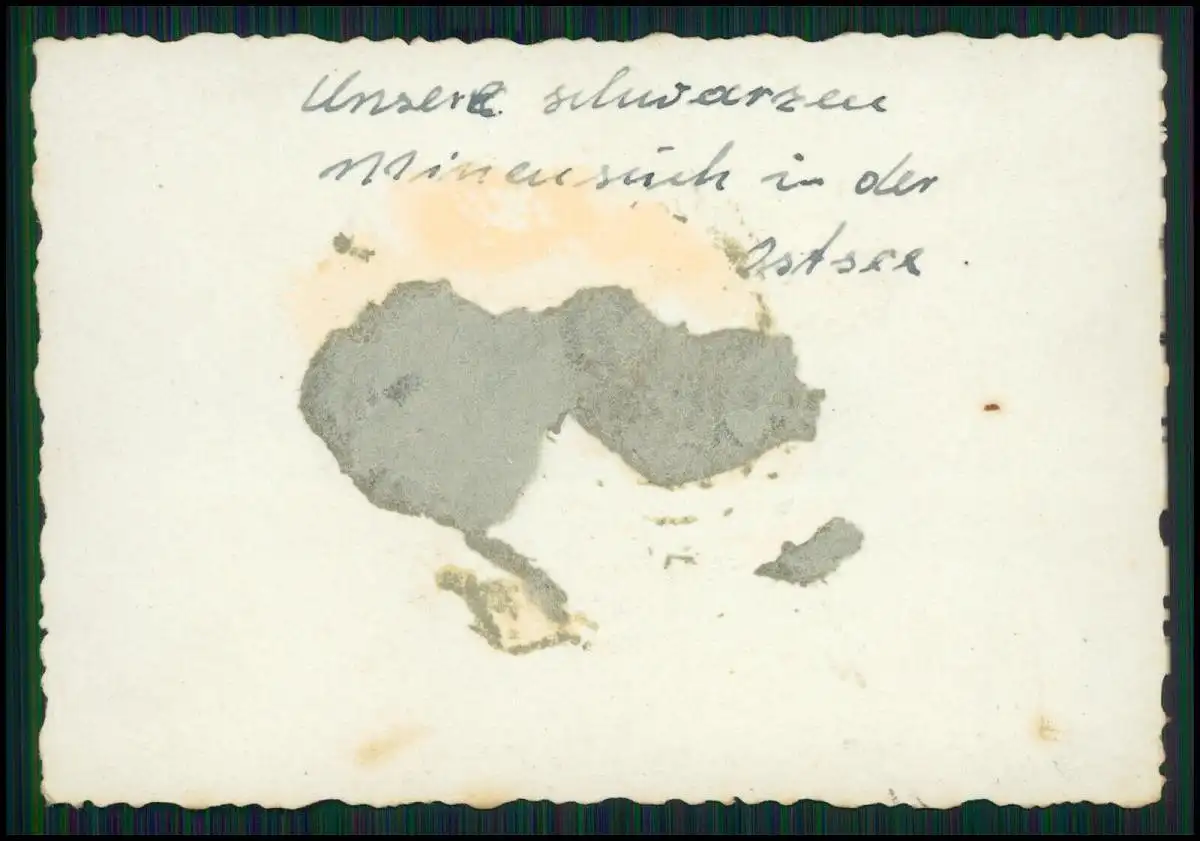 Unsere schwarzen
Minensuch in der
Ostsee.